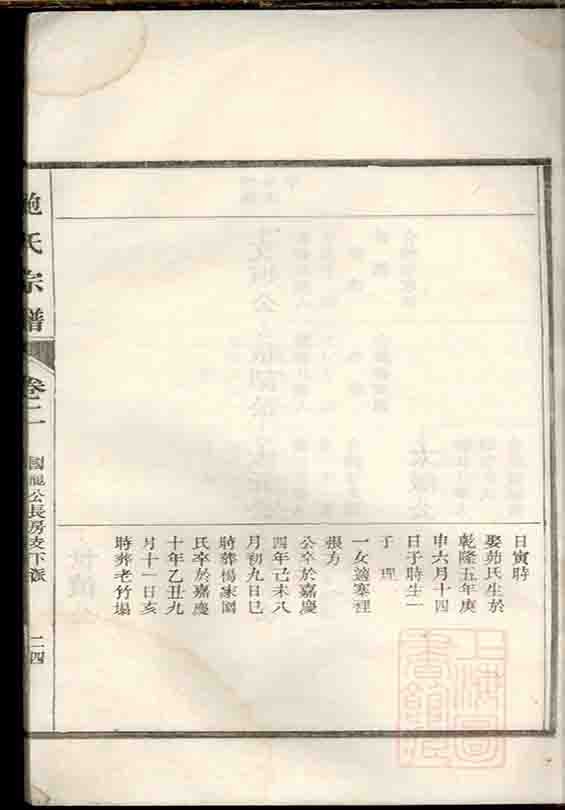 日寅時
娶茆氏生於
乾隆五年庚
申六月十四
日子時生一
子 理
一女適寨裡
張方
公卒於嘉慶
四年己未八
月初九日巳
時葬楊家園
氏卒於嘉慶
十年乙丑九
月十一日亥
時葬老竹塲
鮑氏宗譜
卷二
國龍公長房支下派
二四
上海圖書館藏